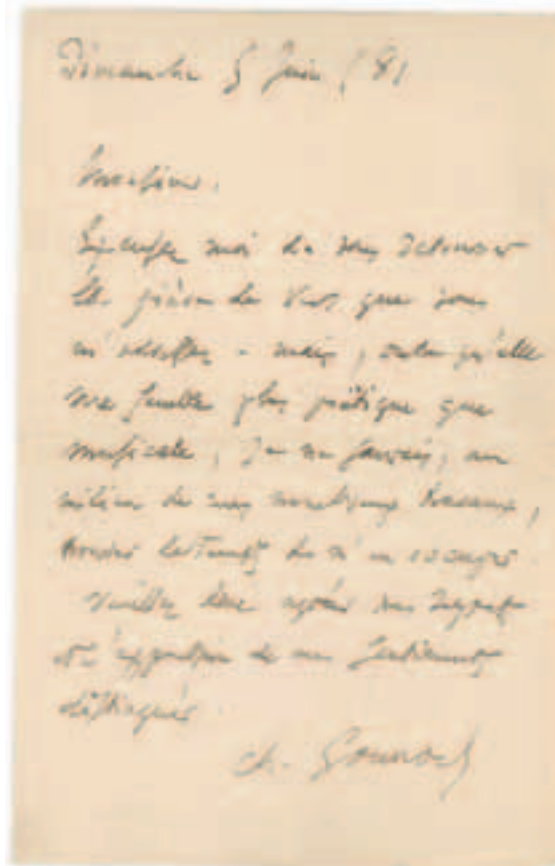 Dimanche 5 Juin /81
Monsieur.
Excusez moi de vous retourner
la pièce de vers que vous
m'adressez - mais, outre qu'elle
me semble plus poëtique que
musicale, je ne saurais, au
milieu de mes nombreux travaux,
trouver le temps de m'en occuper.
Veuillez donc agréer mes regrets
et l'expression de mes sentiments
distingués.
Ch. Gounod